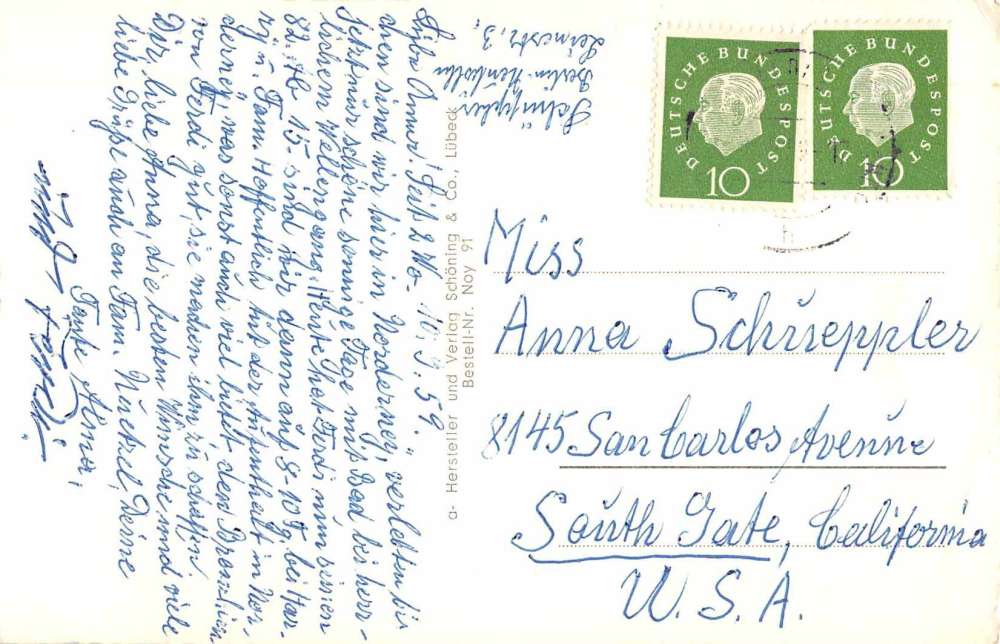 Schüppler
Berlin-Neukölln
Leinestr. 3,
10.9.59.
Anna! Seit 2 Wo-
chen sind wir hier in Norderney, verlebten bis
jetzt nur schöne sonnige Tage mit Bad bei herr-
lichem Wellengang. Heute hat Ferdi nun seinen
82. Ab 15. sind wir dann auf 8-10 Tg. bei Har-
ry u. Fam. Hoffentlich tut der Aufenthalt in Nor-
derney, was sonst auch viel bietet, den Bronchien
von Ferdi gut, sie machen ihm zu schaffen.
Dir, liebe Anna, die besten Wünsche und viele
liebe Grüße auch an Fam. Nuetzel, Deine
Tante Alma,
Ferdi.
a- Hersteller und Verlag Schöning & Co., Lübeck
Bestell-Nr. Noy 91
DEUTSCHE BUNDESPOST
10
DEUTSCHE BUNDESPOST
10
Miss
Anna Schueppler
8145 San Carlos Avenue
South Gate, California
U.S.A.